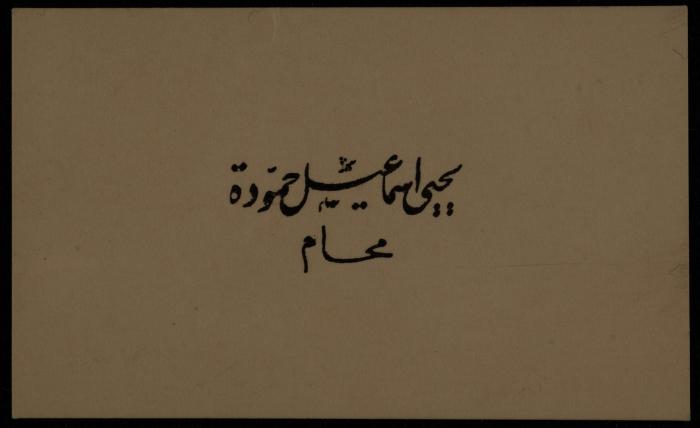 يحيى اسماعيل حمودة
محام